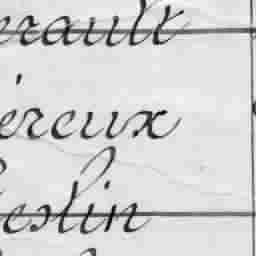 erault
éreux
eslin